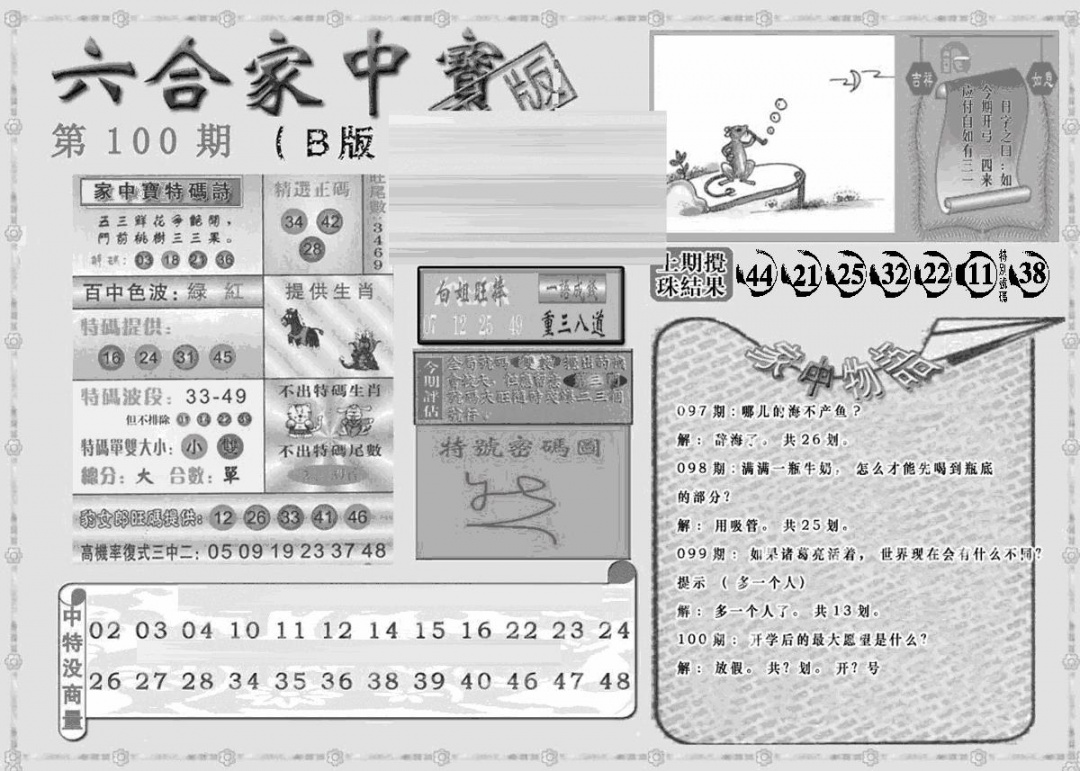 六合家中寶
版
第100期 (B版
家中寶特碼詩
五三鮮花爭艷開，
門前桃樹三三果。
03 18 21 36
精選正碼
34 42
28
旺尾數:3469
百中色波: 綠 紅
提供生肖
特碼提供:
16 24 31 45
特碼波段: 33-49
但不排除
特碼單雙大小: 小 雙
總分: 大 合數: 單
不出特碼生肖
不出特碼尾數
旺碼提供: 12 26 33 41 46
高機率復式三中二: 05 09 19 23 37 48
白姐旺棒
07 12 25 49
一語成籤
重三八道
今期評估
特號密碼圖
中特没商量
02 03 04 10 11 12 14 15 16 22 23 24
26 27 28 34 35 36 38 39 40 46 47 48
吉祥
如意
一日字之曰:如
今期开弓 四来
应付自如有三一
上期攪珠結果
44 21 25 32 22 11 特別號碼 38
家中物語
097期:哪儿的海不产鱼?
解: 辞海了。 共26划。
098期:满满一瓶牛奶, 怎么才能先喝到瓶底
的部分?
解: 用吸管。 共25划。
099期: 如果诸葛亮活着, 世界现在会有什么不同?
提示 (多一个人)
解: 多一个人了。 共13划。
100期: 开学后的最大愿望是什么?
解: 放假。 共?划。 开?号